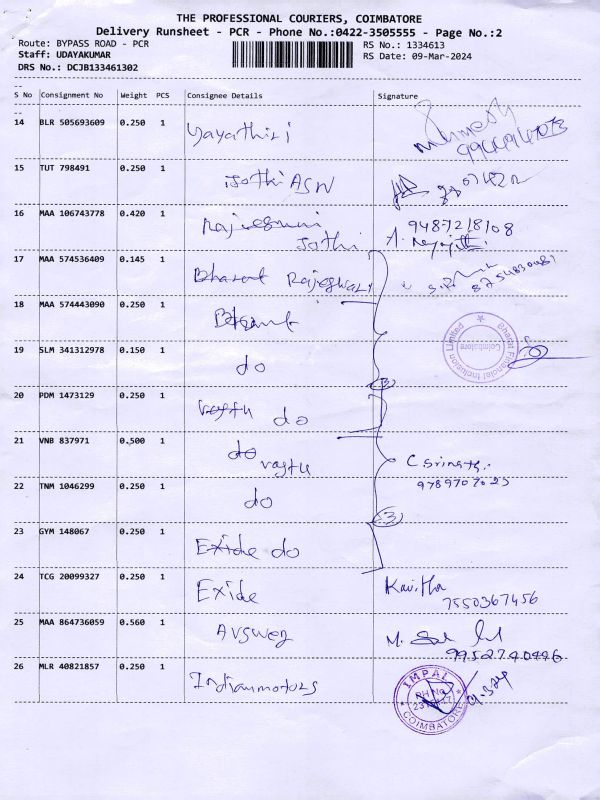 THE PROFESSIONAL COURIERS, COIMBATORE
Delivery Runsheet - PCR - Phone No.:0422-3505555 - Page No.:2
Route: BYPASS ROAD - PCR RS No.: 1334613
Staff: UDAYAKUMAR RS Date: 09-Mar-2024
DRS No.: DCJB133461302
S No Consignment No Weight PCS Consignee Details Signature
14 BLR 505693609 0.250 1
15 TUT 798491 0.250 1 Jothi ASW
16 MAA 106743778 0.420 1 Jothi 9487218108
17 MAA 574536409 0.145 1 Bharat Rajeswari 8754830481
18 MAA 574443090 0.250 1
Bharat Financial Inclusion Limited
Coimbatore
19 SLM 341312978 0.150 1 do
3
20 PDM 1473129 0.250 1 vastu do
21 VNB 837971 0.500 1 do vastu C Srinath.
9789707025
22 TNM 1046299 0.250 1 do
3
23 GYM 148067 0.250 1 Exide do
24 TCG 20099327 0.250 1 Exide Kavitha
7550367456
25 MAA 864736059 0.560 1 M.
9952740446
26 MLR 40821857 0.250 1 Indianmotors
IMPAL
COIMBATORE